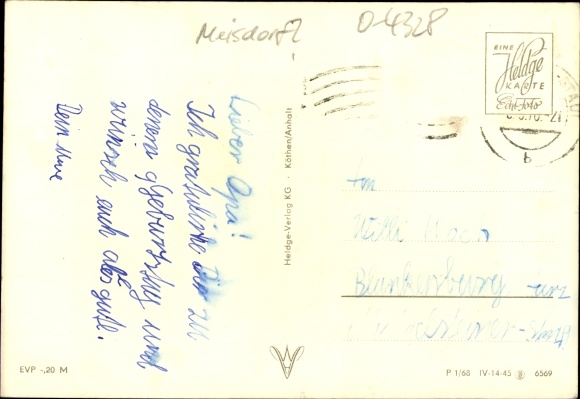 Meisdorf?
D-4328
EINE
Heldge
KARTE
Echt Foto
Lieber Opa!
Ich gratuliere Dir zu
deinen geburtstag und
wünsch auch alles gute.
Dein Uwe
Heldge-Verlag KG · Köthen/Anhalt
Willi
Blankenburg Harz
b
EVP -,20 M
P 1/68 IV-14-45 6569